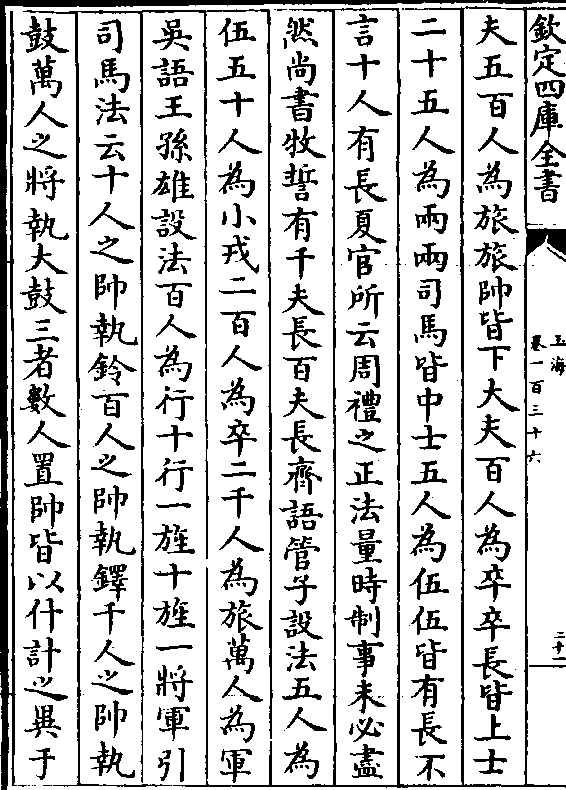 欽定四庫全書
玉海
卷一百三十六
二十一
夫五百人為旅旅帥皆下大夫百人為卒卒長皆上士
二十五人為兩兩司馬皆中士五人為伍伍皆有長不
言十人有長夏官所云周禮之正法量時制事未必盡
然尚書牧誓有千夫長百夫長齊語管子設法五人為
伍五十人為小戎二百人為卒二千人為旅萬人為軍
吳語王孫雄設法百人為行十行一旌十旌一將軍引
司馬法云十人之帥執鈴百人之帥執鐸千人之帥執
鼓萬人之將執大鼓三者數人置帥皆以什計之異于